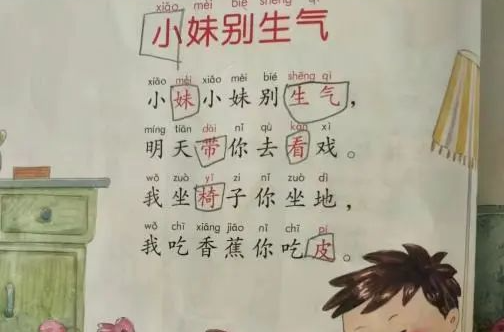 xiǎo mèi bié shēng qì
小妹别生气
xiǎo mèi xiǎo mèi bié shēng qì
小妹小妹别生气，
míng tiān dài nǐ qù kàn xì
明天带你去看戏。
wǒ zuò yǐ zi nǐ zuò dì
我坐椅子你坐地，
wǒ chī xiāng jiāo nǐ chī pí
我吃香蕉你吃皮。